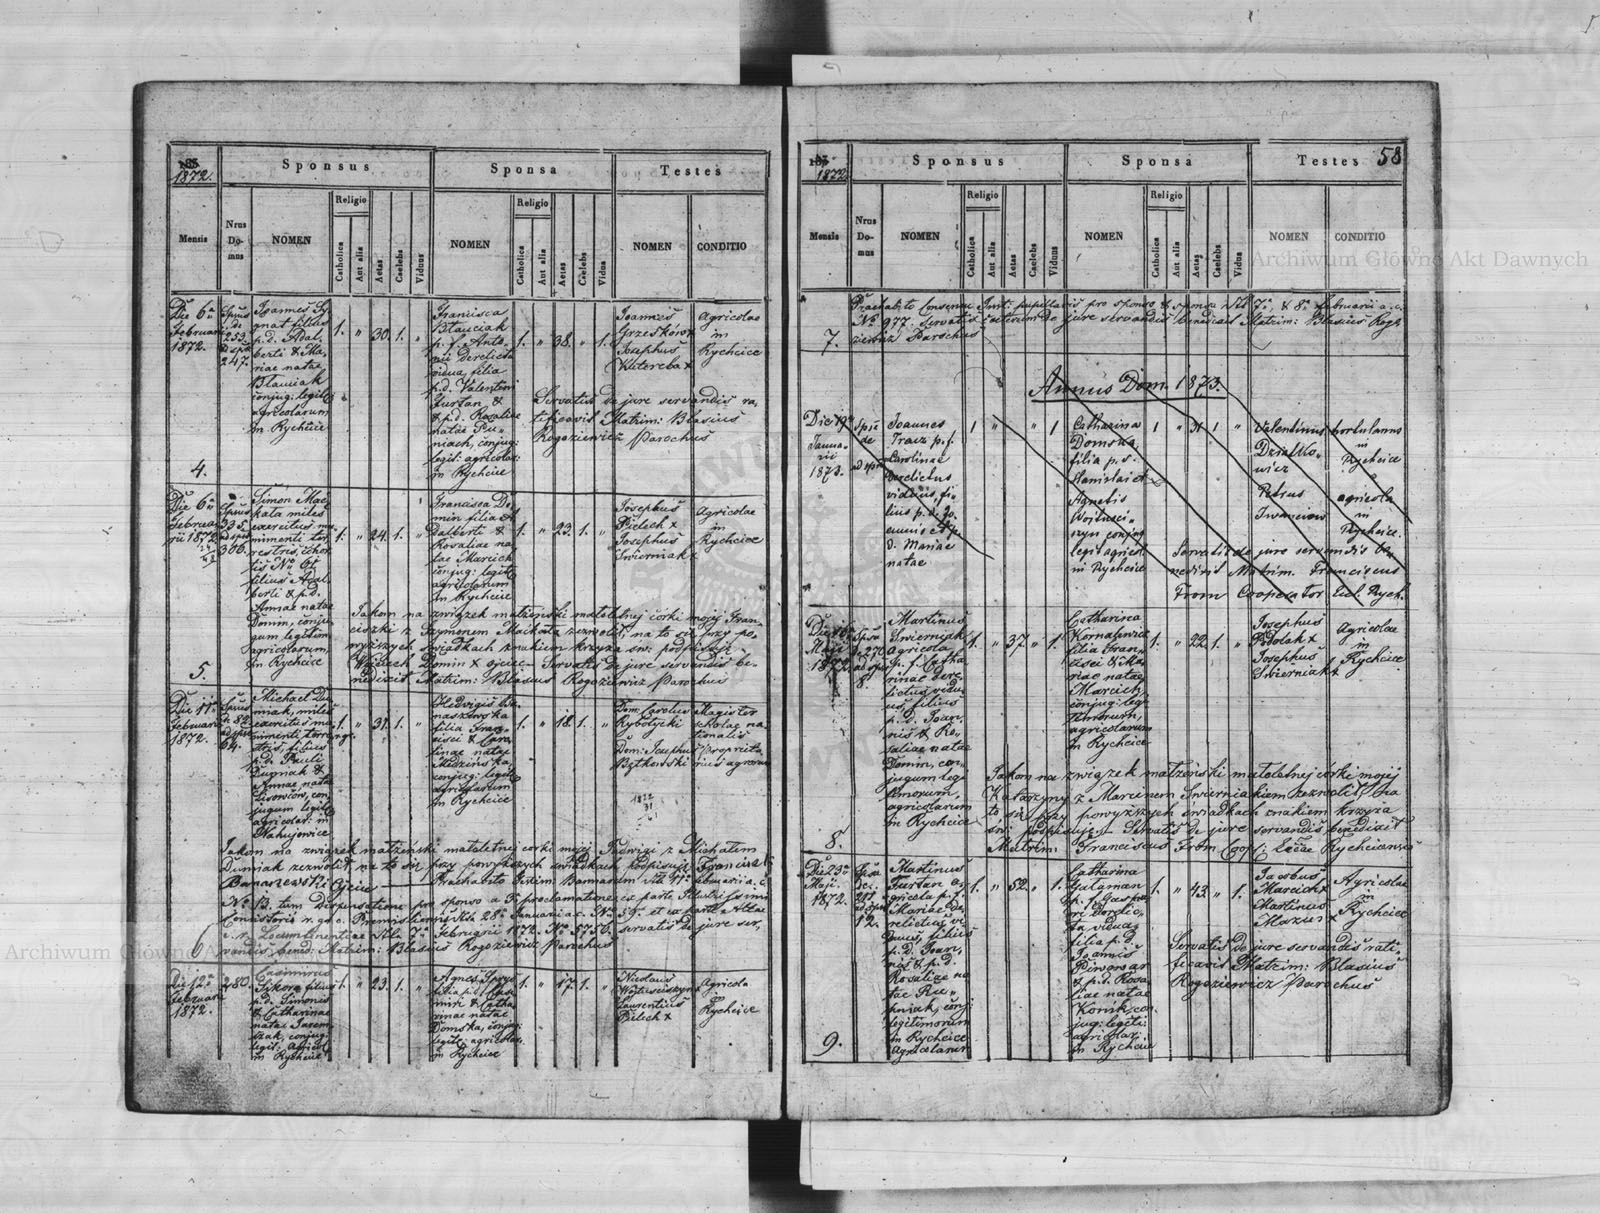 185
1872.
Sponsus
Sponsa
Testes
Mensis
Nrus Do-mus
NOMEN
Religio
Catholica
Aut alia
Aetas
Caelebs
Viduus
NOMEN
Religio
Catholica
Aut alia
Aetas
Caelebs
Vidua
NOMEN
CONDITIO
Die 6a
Februarii
1872.
Spsus
de
253
ad spsa
247.
4.
Joannes
filius
p.d. Adal-
berti & Ma-
riae natae
Blauciak
conjug: legit:
agricolarum
in Rychcice
1. " 30. 1. "
Francisca
Blauciak
p. f. Anto-
nii derelicta
vidua, filia
p.d. Valentini
Furtan, &
p.d. Rosaliae
natae
conjug:
legit: agricolar:
in Rychcice
1. " 38. " 1.
Joannes
Grzesków x
Josephus
Kutereba x
Agricolae
in
Rychcice
Servatis de jure servandis ra-
tificavit Matrim: Blasius
Rogoziewicz Parochus
Die 6a
Februa-
rii 1872
Spsus
335.
ad spsa
306.
5.
Simon Mac-
kata miles
exercitus mu-
nimenti ter-
restris, cohor-
tis No 61
filius Adal-
berti & p.d.
Annae natae
Domin, conju-
gum legitim
agricolarum,
in Rychcice
1. " 24. 1. "
Francisca Do-
min filia A-
dalberti &
Rosaliae na-
tae Marcich
conjug: legit:
agricolarum
in Rychcice
1. " 23. 1. "
Josephus
Bielech x
Josephus
Swierniak x
Agricolae
in
Rychcice
Jakom na związek małżeński małoletniej córki mojej Fran-
ciszki z Szymonem Maćkatą zezwolił, na to się przy po-
wyższych świadkach znakiem krzyża św: podpisuję
Wojciech Domin x ojciec — Servatis de jure servandis be-
nedixit Matrim: Blasius Rogoziewicz Parochus
Die 11a
Februarii
1872.
Spsus
82
ad spsa
64.
6
Michael Du-
niak, miles
exercitus mu-
nimenti terre-
stris, filius
p.d. Pauli
Duniak &
Annae natae
Lisowicow, con-
jugum legit:
agricolar: in
Nahujowice
1. " 31. 1. "
Hedvigis Ba-
naszewska
filia Fran-
cisci & Caro-
linae natae
conjug: legit:
agricolarum
in Rychcice
1. " 18. 1. "
Dom: Carolus
Rybotycki
Dom: Josephus
Bątkowski
Magister
scholae na-
tionalis
Proprieta-
rius agrorum
Jakom na związek małżeński małoletniej córki mojej Jadwigi z Michałem
Duniak zezwolił, na to się przy powyższych świadkach podpisuję Franciszek
Banaszewski Ojciec
No 13. tum dispensatione pro sponso a 3 proclamatione ex parte
Consistorii r. gr. c. Premisliensis ddo 28a Januarii a.c. No
Februarii 1872. No 5756. servatis de jure ser-
vandis bened: Matrim: Blasius Rogoziewicz Parochus
Die 12a
Februarii
1872.
280.
Casimirus
Sikora filius
p.d. Simonis
& Catharinae
natae
conjug:
legit: agricol:
in Rychcice
1. " 23. 1. "
Agnes
filia p.d. Casi-
miri & Catha-
rinae natae
Domska, conjug:
legit: agricolar:
in Rychcice
1. " 17. 1. "
Nicolaus
Laurentius
Bielech x
Agricolae
in
Rychcice
58
185
1872.
Sponsus
Sponsa
Testes
Mensis
Nrus Do-mus
NOMEN
Religio
Catholica
Aut alia
Aetas
Caelebs
Viduus
NOMEN
Religio
Catholica
Aut alia
Aetas
Caelebs
Vidua
NOMEN
CONDITIO
7.
Praehabito Consensu Inst: pupillaris pro sponso & sponsa ddo 7a & 8a Februarii a.c.
No 977. Servatis ceterum de jure servandis benedixit Matrim: Blasius Rogo-
ziewicz Parochus
Annus Dom. 1873.
Die 19
Janua-
rii
1873.
Spsus
de
ad spsa
Joannes
Tracz p. f.
Carolinae
derelictus
viduus, fi-
lius p.d. Jo-
annis & p.
d. Mariae
natae
1 " " 1
Catharina
Domska
filia p.d.
Stanislai &
Agnetis
conjug
legit agricol
in Rychcice
1 " 31 1 "
Valentinus
Petrus
Iwanciow
hortulanus
in
Rychcice
agricola
in
Rychcice.
Servatis de jure servandis be-
nedixit Matrim. Franciscus
From Cooperator Eccl. Rych.
Maji
1872
Spsus
270
ad spsa
8.
8.
Martinus
Swierniak
agricola
p. f. Catha-
rinae dere-
lictus vidu-
us, filius
p.d. Joan-
nis & Ro-
saliae natae
Domin, con-
jugum legi-
timorum,
agricolarum
in Rychcice
1. " 37 " 1.
Catharina
Kornalewicz
filia Fran-
cisci & Ma-
riae natae
Marcich
conjug: legi-
timorum,
agricolarum
in Rychcice
1. " 22. 1. "
Josephus
Podolak x
Josephus
Swierniak x
Agricolae
in
Rychcice
Jakom na związek małżeński małoletniej córki mojej
Katarzyny z Marcinem Swierniakiem zezwolił, na
to się przy powyższych świadkach znakiem krzyża
św: podpisuję — Servatis de jure servandis benedixit
Matrim: Franciscus From Coop: Eccl: Rychcicensis
Die 23a
Maji
1872.
Spsus
ad spsa
12.
9.
Martinus
Furtan a-
gricola p. f.
Mariae de-
relictus vi-
duus, filius
p.d. Joan-
nis & p.d.
Rosaliae na-
tae
conj:
legitimorum
in Rychcice
agricolarum
1. " 52. " 1.
Catharina
Gałaman
p. f. Gaspa-
ri derelic-
ta vidua,
filia p.d.
Joannis
Piwowar
& p.d. Rosa-
liae natae
Konik, con-
jug: legiti:
agricolar:
in Rychcice
1. " 43. " 1.
Jacobus
Marcich x
Martinus
Mazur x
Agricolae
in
Rychcice
Servatis de jure servandis rati-
ficavit Matrim: Blasius
Rogoziewicz Parochus
Archiwum Główne Akt Dawnych
Archiwum Główne Akt Dawnych